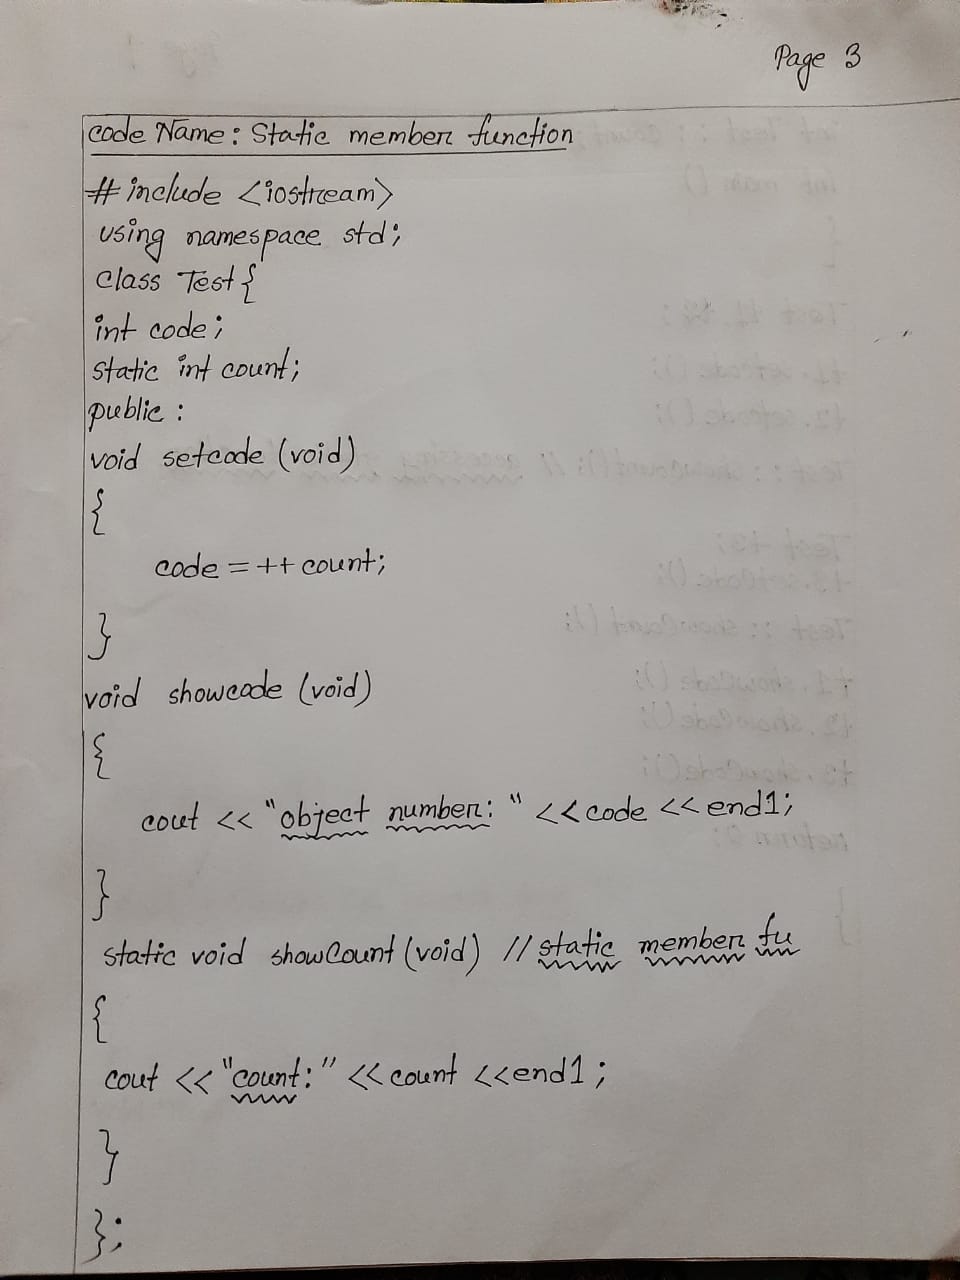 Page 3
Code Name: Static member function
# include <iostream>
using namespace std;
Class Test {
int code;
static int count;
public :
void setcode (void)
{
code = ++ count;
}
void showcode (void)
{
cout << "object number: " << code << end1;
}
static void showCount (void) // static member fu
{
cout << "count:" << count << end1 ;
}
};